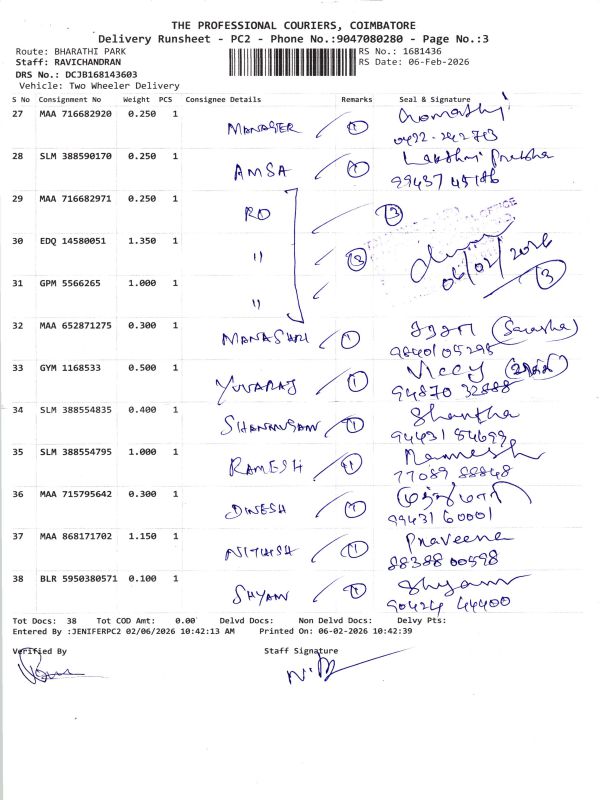 THE PROFESSIONAL COURIERS, COIMBATORE
Delivery Runsheet - PC2 - Phone No.:9047080280 - Page No.:3
Route: BHARATHI PARK
RS No.: 1681436
Staff: RAVICHANDRAN
RS Date: 06-Feb-2026
DRS No.: DCJB168143603
Vehicle: Two Wheeler Delivery
S No Consignment No Weight PCS Consignee Details Remarks Seal & Signature
27 MAA 716682920 0.250 1 MANAGER 1
0422-242743
28 SLM 388590170 0.250 1 AMSA 1
99437 45186
29 MAA 716682971 0.250 1 RO 3
OFFICE
30 EDQ 14580051 1.350 1 " 3
06/02/2026
31 GPM 5566265 1.000 1 " 3
32 MAA 652871275 0.300 1 1
98401 05295
33 GYM 1168533 0.500 1 YUVARAJ 1 Viccy
94870 32888
34 SLM 388554835 0.400 1 1 Shantha
94431 84699
35 SLM 388554795 1.000 1 RAMESH 1 Ramesh
77089 88848
36 MAA 715795642 0.300 1 DINESH 1
99431 60001
37 MAA 868171702 1.150 1 NITHISH 1 Praveena
88388 00598
38 BLR 5950380571 0.100 1 SHYAM 1 Shyam
90424 44400
Tot Docs: 38 Tot COD Amt: 0.00 Delvd Docs: Non Delvd Docs: Delvy Pts:
Entered By :JENIFERPC2 02/06/2026 10:42:13 AM Printed On: 06-02-2026 10:42:39
Verified By Staff Signature